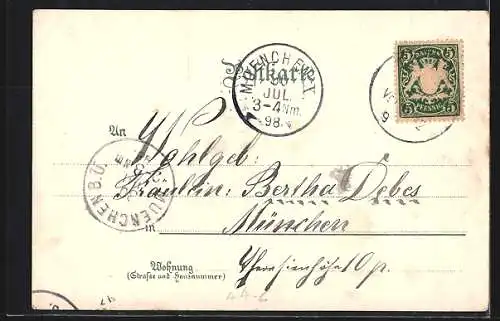 Postkarte
MUENCHEN
30
JUL.
3-4 Nm.
98.
5 5
5 5
An
Wohlgeb:
Fräulein: Bertha Debes
in München
MUENCHEN B.Ü.
Wohnung
(Strasse und Hausnummer)
Theresienhöhe 10 p.
44-6